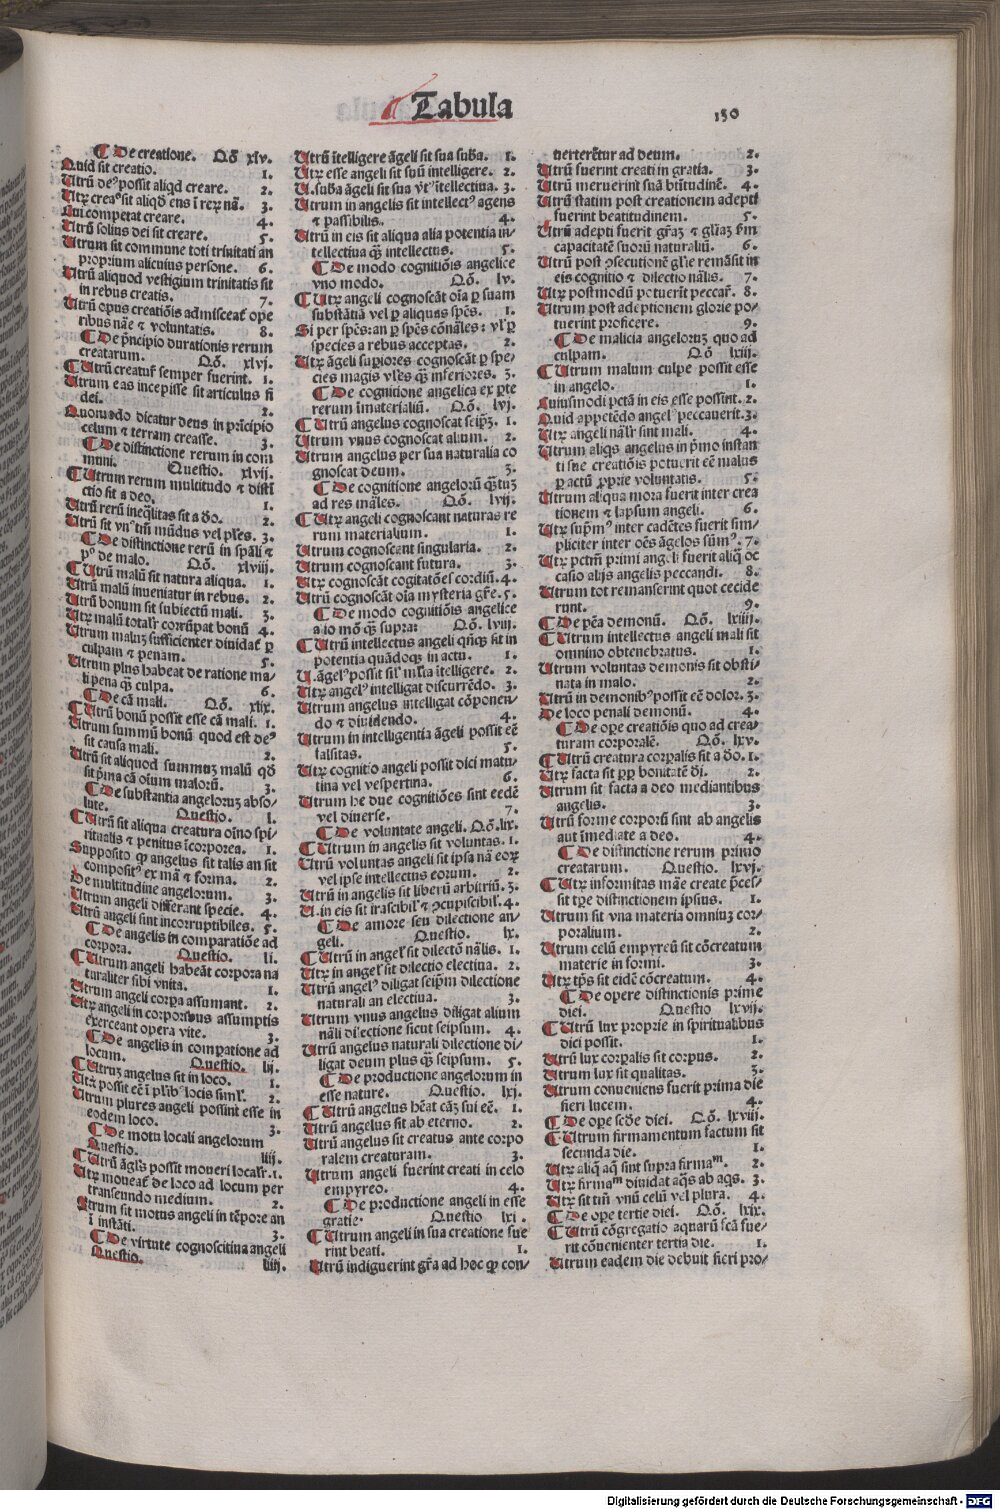 Tabula
150
¶ De creatione. Qō xlv.
Quid sit creatio. 1.
Utrū deꝰ possit aliqd creare. 2.
Utꝝ creaꝰ sit aliqd ens ī reꝝ nā. 3.
Cui competat creare. 4.
Utrū solius dei sit creare. 5.
Utrum sit commune toti trinitati an
proprium alicuius persone. 6.
Utrū aliquod vestigium trinitatis sit
in rebus creatis. 7.
Utrū opus creatiōis admisceat̄ ope
ribus nāe ⁊ voluntatis. 8.
¶ De pͥncipio durationis rerum
creatarum. Qō. xlvj.
¶ Utrū creatur̄ semper fuerint. 1.
Utrum eas incepisse sit articulus fi
dei. 2.
Quomodo dicatur deus in pͥcipio
celum ⁊ terram creasse. 3.
¶ De distinctione rerum in com
muni. Questio. xlvij.
¶ Utrum rerum multitudo ⁊ distī
ctio sit a deo. 1.
Utrū rerū ineq̄litas sit a deo. 2.
Utrū sit vnꝰ tm̄ mūdus vel ples. 3.
¶ De distinctione rerū in spāli ⁊
pͦ de malo. Qō. xlviij.
¶ Utrū malū sit natura aliqua. 1.
Utrū malū inueniatur in rebus. 2.
Utrū bonum sit subiectū mali. 3.
Utꝝ malū totalr̄ corrūpat bonū 4.
Utrum maluꝫ sufficienter diuidat̄ ꝑ
culpam ⁊ penam. 5.
Utrum plus habeat de ratione ma-
li pena q̄ culpa. 6.
¶ De cā mali. Qō. xlix.
¶ Utrū bonū possit esse cā mali. 1.
Utrum summū bonū quod est deꝰ
sit causa mali. 2.
Utrū sit aliquod summuꝫ malū qd̄
sit pͥma cā oīum malorū. 3.
¶ De substantia angeloruꝫ abso-
lute. Questio. l.
¶ Utrū sit aliqua creatura oīno spi-
ritualis ⁊ penitus īcorporea. 1.
Supposito ꝙ angelus sit talis an sit
compositꝰ ex mā ⁊ forma. 2.
De multitudine angelorum. 3.
Utrum angeli differant specie. 4.
Utrū angeli sint incorruptibiles. 5.
¶ De angelis in comparatiōe ad
corpora. Questio. li.
¶ Utrum angeli habeāt corpora na
turaliter sibi vnita. 1.
Utrum angeli corpa assumant. 2.
Utꝝ angeli in corporibus assumptis
exerceant opera vite. 3.
¶ De angelis in compatione ad
locum. Questio. lij.
¶ Utruꝫ angelus sit in loco. 1.
Utꝝ possit eē ī plibꝰ locis simľ. 2.
Utrum plures angeli possint esse in
eodem loco. 3.
¶ De motu locali angelorum
Questio. liij.
¶ Utrū āglꝰs possit moueri localr̄. 1.
Utꝝ moueat̄ de loco ad locum per
transeundo medium. 2.
Utrum sit motus angeli in tēpore an
ī instāti. 3.
¶ De virtute cognoscitiua angeli
Questio. liiij.
Utrū ītelligere āgeli sit sua suba. 1.
Utꝝ esse angeli sit suū intelligere. 2.
U. suba āgeli sit sua v̄tꝰ ītellectiua. 3.
Utrum in angelis sit intellectꝰ agens
⁊ passibilis. 4.
Utrū in eis sit aliqua alia potentia in-
tellectiua q̄ꝫ intellectus. 5.
¶ De modo cognitiōis angelice
vno modo. Qō. lv.
¶ Utꝝ angeli cognoscāt oīa ꝑ suam
substātiā vel ꝑ aliquas spēs. 1.
Si per spēs: an ꝑ spēs cōnāles: vľ ꝑ
species a rebus acceptas. 2.
Utꝝ āgeli suꝑiores cognoscāt ꝑ spe-
cies magis vles q̄ꝫ inferiores. 3.
¶ De cognitione angelica ex ꝑte
rerum īmaterialiū. Qō. lvj.
¶ Utrū angelus cognoscat seipꝫ. 1.
Utrum vnus cognoscat alium. 2.
Utrum angelus per sua naturalia co
gnoscat deum. 3.
¶ De cognitione angelorū q̄ꝫtuꝫ
ad res māles. Qō. lvij.
¶ Utꝝ angeli cognoscant naturas re
rum materialium. 1.
Utrum cognoscant singularia. 2.
Utrum cognoscant futura. 3.
Utꝝ cognoscāt cogitatōes cordiū. 4.
Utrū cognoscāt oīa mysteria gr̄e. 5.
¶ De modo cognitiōis angelice
a io mō q̄ꝫ supra: Qō. lviij.
¶ Utrū intellectus angeli qn̄qꝫ sit in
potentia quādoqꝫ in actu. 1.
U. āgelꝰ possit sil' ml'ta ītelligere. 2.
Utꝝ angelꝰ intelligat discurrēdo. 3.
Utrum angelus intelligat cōponen-
do ⁊ diuidendo. 4.
Utrum in intelligentia āgeli possit eē
falsitas. 5.
Utꝝ cognitio angeli possit dici matu-
tina vel vespertina. 6.
Utrum he due cognitiōes sint eedē
vel diuerse. 7.
¶ De voluntate angeli. Qō. lix.
¶ Utrum in angelis sit voluntas. 1.
Utrū voluntas angeli sit ipsa nā eoꝝ
vel ipse intellectus eorum. 2.
Utrū in angelis sit liberū arbitriū. 3.
U. in eis sit irascibil' ⁊ ꝯcupiscibil'. 4.
¶ De amore seu dilectione an-
geli. Questio. lx.
¶ Utrū in angel' sit dilectō nālis. 1.
Utꝝ in angel' sit dilectio electiua. 2.
Utrū angelꝰ diligat seipm̄ dilectione
naturali an electiua. 3.
Utrum vnus angelus diligat alium
nāli dilectione sicut seipsum. 4.
Utrū angelus naturali dilectione di-
ligat deum plus q̄ꝫ seipsum. 5.
¶ De productione angelorum in
esse nature. Questio. lxj.
¶ Utrū angelus hēat cāꝫ sui eē. 1.
Utrū angelus sit ab eterno. 2.
Utrū angelus sit creatus ante corpo
ralem creaturam. 3.
Utrum angeli fuerint creati in celo
empyreo. 4.
¶ De productione angeli in esse
gratie. Questio lxi.
¶ Utrum angeli in sua creatione fue
rint beati. 1.
Utrū indiguerint gr̄a ad hoc ꝙ con-
uerteret̄ur ad deum. 2.
Utrū fuerint creati in gratia. 3.
Utrū meruerint suā btītudinē. 4.
Utrū statim post creationem adepti
fuerint beatitudinem. 5.
Utrū adepti fuerit gr̄aꝫ ⁊ gl'iaꝫ ẜm
capacitatē suorū naturaliū. 6.
Utrū post ꝯsecutionē gl'ie remāsit in
eis cognitio ⁊ dilectio nālis. 7.
Utꝝ postmodū potuerīt peccar̄. 8.
Utrum post adeptionem glorie po-
tuerint proficere. 9.
¶ De malicia angeloruꝫ quo ad
culpam. Qō lxiij.
¶ Utrum malum culpe possit esse
in angelo. 1.
Cuiusmodi pctā in eis esse possint. 2.
Quid appetēdo angelꝰ peccauerīt. 3.
Utꝝ angeli nālr̄ sint mali. 4.
Utrum aliqs angelus in pͥmo instan
ti sue creatiōis potuerit eē malus
ꝑ actū ꝓprie voluntatis. 5.
Utrum aliqua mora fuerit inter crea
tionem ⁊ lapsum angeli. 6.
Utꝝ supͥmꝰ inter cadētes fuerit sim-
pliciter inter oēs āgelos sūmꝰ. 7.
Utꝝ pctm̄ primi angeli fuerit aliq̄ oc
casio alijs angelis peccandi. 8.
Utrum tot remanserint quot cecide
runt. 9.
¶ De pēa demonū. Qō. lxiiij.
¶ Utrum intellectus angeli mali sit
omnino obtenebratus. 1.
Utrum voluntas demonis sit obsti-
nata in malo. 2.
Utrū in demonibꝰ possit eē dolor. 3.
De loco penali demonū. 4.
¶ De oꝑe creatiōis quo ad crea-
turam corporalē. Qō. lxv.
¶ Utrū creatura corꝑalis sit a deo. 1.
Utꝝ facta sit ꝓp̄ bonitatē dei. 2.
Utrum sit facta a deo mediantibus
angelis. 3.
Utrū forme corporū sint ab angelis
aut īmediate a deo. 4.
¶ De distinctione rerum primo
creatarum. Questio. lxvj.
¶ Utꝝ informitas māe create p̄ces-
sit tꝑe distinctionem ipsius. 1.
Utrum sit vna materia omniuꝫ cor-
poralium. 2.
Utrum celū empyreū sit cōcreatum
materie in formi. 3.
Utꝝ tp̄s sit eidē cōcreatum. 4.
¶ De opere distinctionis prime
diei. Questio lxvij.
¶ Utrū lux proprie in spiritualibus
dici possit. 1.
Utrū lux corꝑalis sit corpus. 2.
Utrum lux sit qualitas. 3.
Utrum conueniens fuerit prima die
fieri lucem. 4.
¶ De oꝑe scd̄e diei. Qō. lxviij.
¶ Utrum firmamentum factum sit
secunda die. 1.
Utꝝ aliq̄ aq̄ sint supra firmaᵐ. 2.
Utꝝ firmaᵐ diuidat aq̄s ab aqs. 3.
Utꝝ sit tm̄ vnū celū vel plura. 4.
¶ De oꝑe tertie diei. Qō. lxix.
¶ Utrū cōgregatio aquarū fcā fue-
rit cōuenienter tertia die. 1.
Utrum eadem die debuit fieri pro-
Digitalisierung gefördert durch die Deutsche Forschungsgemeinschaft - DFG